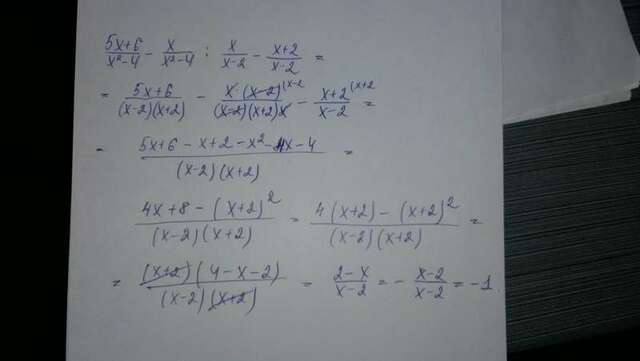 (5x+6)/(x²-4) - x/(x²-4) : x/(x-2) - (x+2)/(x-2) =
= (5x+6)/((x-2)(x+2)) - (x(x-2)^(x-2)/((x-2)(x+2)x) - (x+2^(x+2)/(x-2) =
= (5x+6-x+2-x²-4x-4)/((x-2)(x+2)) =
(4x+8-(x+2)²)/((x-2)(x+2)) = (4(x+2)-(x+2)²)/((x-2)(x+2)) =
= ((x+2)(4-x-2))/((x-2)(x+2)) = (2-x)/(x-2) = - (x-2)/(x-2) = -1.